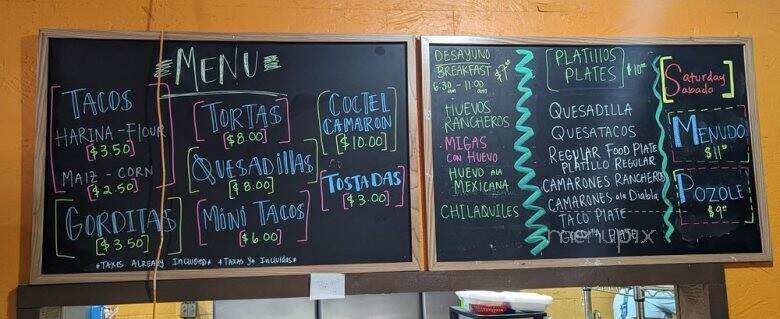 MENU
TACOS
HARINA - FLOUR
$3.50
MAIZ - CORN
$2.50
GORDITAS
$3.50
TORTAS
$8.00
QUESADILLAS
$8.00
MINI TACOS
$6.00
COCTEL
CAMARON
$10.00
TOSTADAS
$3.00
*TAXES ALREADY INCLUDED* *TAXAS YA INCLUIDAS*
DESAYUNO
BREAKFAST
6:30 am - 11:00 am
HUEVOS
RANCHEROS
MIGAS
CON HUEVO
HUEVO ALA
MEXICANA
CHILAQUILES
PLATILLOS
PLATES $10.00
QUESADILLA
QUESATACOS
REGULAR FOOD PLATE
PLATILLO REGULAR
CAMARONES RANCHEROS
CAMARONES ala Diabla
TACO PLATE
PLATE
menupix
Saturday
Sabado
MENUDO
$11.00
POZOLE
$9.00